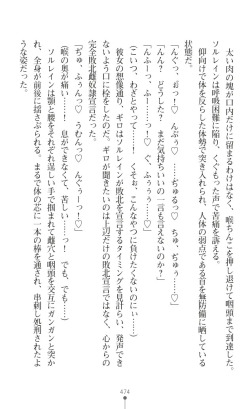 太い肉の塊が口内だけに留まるはずはなく、喉ちんこを押し退けて咽頭まで到達した。
ソルレインは呼吸困難に陥り、くぐもった声で苦痛を訴える。
仰向けで体を反らした体勢で突き入れられ、人体の弱点である首を無防備に晒している
状態だ。
「んぐっ。おっ！♡　んぶぅ♡」
「んん？　どうした？　まだ気持ちいいの一言も言えないのか？」
「んふーっ、ふーっ！♡　ぐ、ふぅぅぅ……！」
（こいつ、わざとやって……！　こんなやつに負けたくないのに……！）
「んぐぅぅぅ！♡　お……っ！♡　ぢゅるっ♡　ちゅ、ぢゅぅ――♡」
彼女の想像通り、ギロはソルレインが敗北を宣言するタイミングを見計らい、発声でき
ないよう口に栓をしたのだ。ギロが聞きたいのは上辺だけの敗北宣言ではなく、心からの
完全敗北雌奴隷宣言だった。
「ぢゅ、ふぅんっ♡　うむっ♡　んぐぅーっ！♡」
（喉の奥が痛い……！　息ができない、苦しい……っ！）
ソルレインは顎と腰をそれぞれ逞しい手で掴まれて雌穴と咽頭を交互にガンガンと突か
れ、全身が前後に揺さぶられる。まるで体の芯に一本の棒を通され、串刺し処刑されたよ
うな姿だった。
474